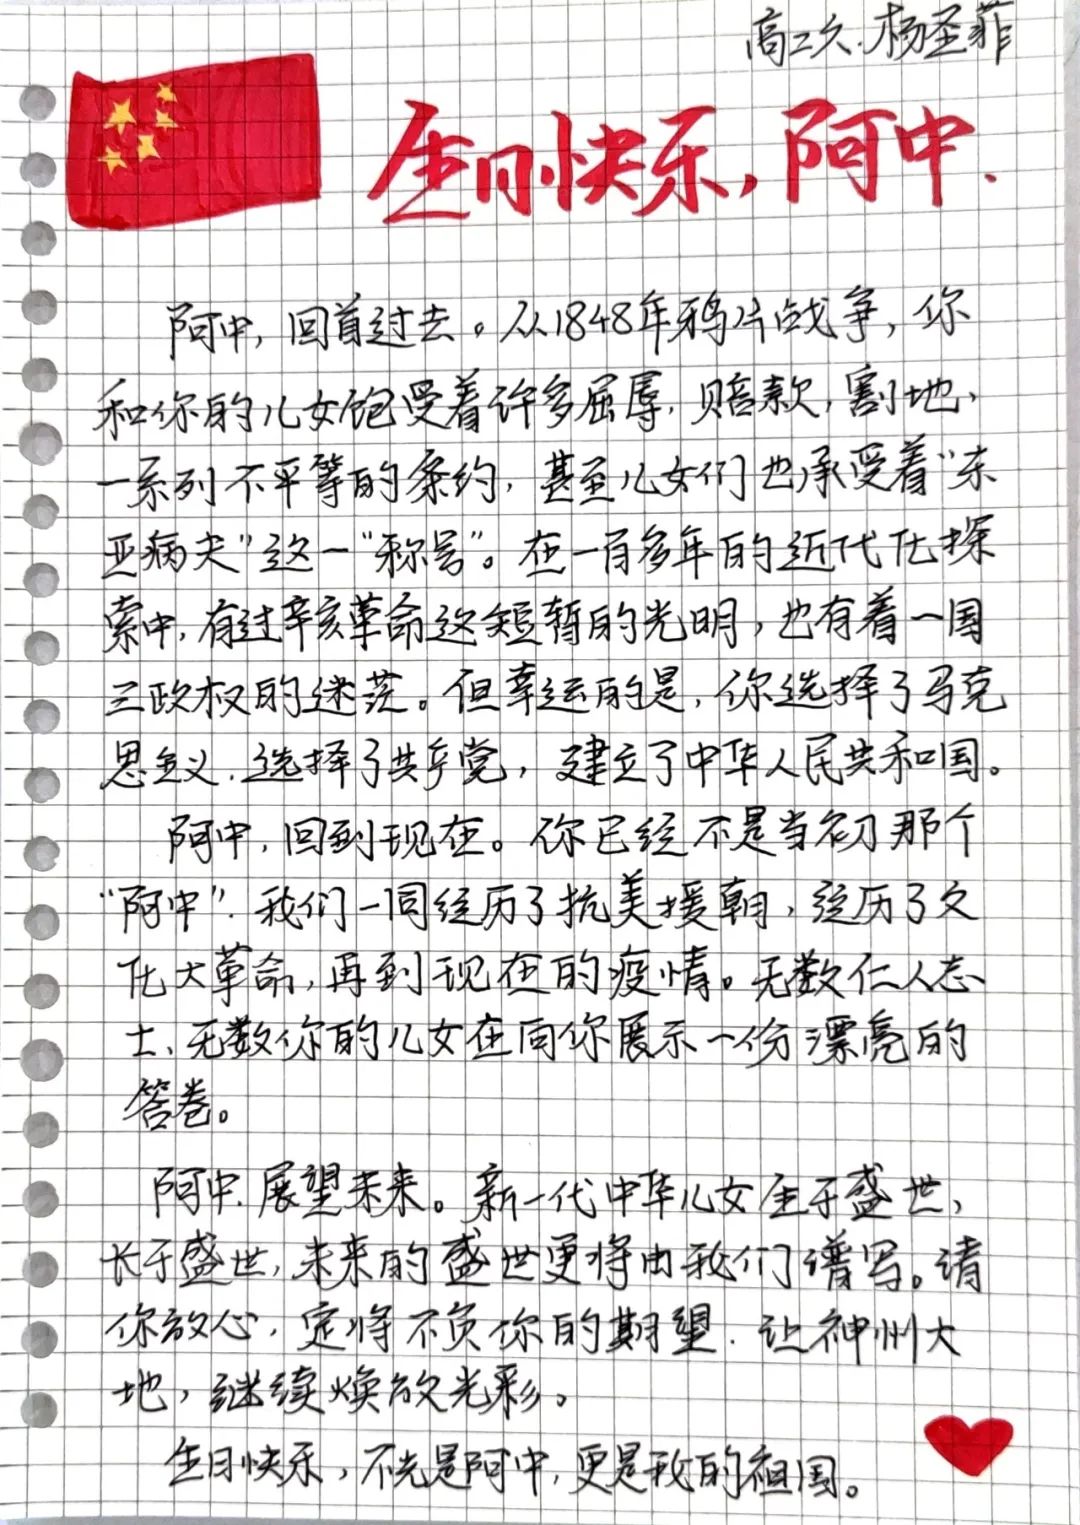 高二久.杨圣菲
生日快乐，阿中.
阿中，回首过去。从1848年鸦片战争，你
和你的儿女饱受着许多屈辱.赔款，割地，
一系列不平等的条约，甚至儿女们也承受着“东
亚病夫”这一“称号”。在一百多年的近代化探
索中，有过辛亥革命这短暂的光明，也有着一国
三政权的迷茫。但幸运的是，你选择了马克
思主义.选择了共产党，建立了中华人民共和国。
阿中，回到现在。你已经不是当初那个
“阿中”.我们一同经历了抗美援朝，经历了文
化大革命，再到现在的疫情。无数仁人志
士、无数你的儿女在向你展示一份漂亮的
答卷。
阿中.展望未来。新一代中华儿女生于盛世，
长于盛世，未来的盛世更将由我们谱写。请
你放心，定将不负你的期望.让神州大
地，继续焕放光彩。
生日快乐，不光是阿中，更是我的祖国。